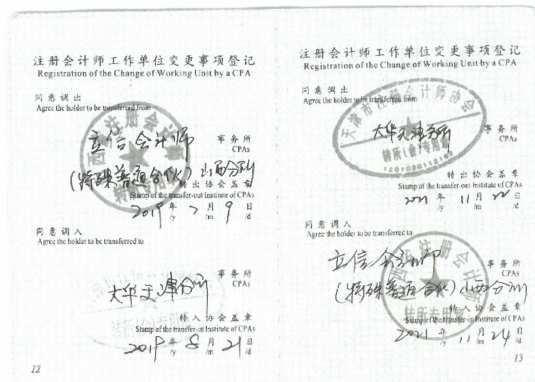 注册会计师工作单位变更事项登记
Registration of the Change of Working Unit by a CPA
同意调出
Agree the holder to be transferred from
立信会计师
事务所
CPAs
(特殊普通合伙)山西分所
转出协会盖章
Stamp of the transfer-out Institute of CPAs
2019年7月9日
/y /m /d
同意调入
Agree the holder to be transferred to
大华天津分所
事务所
CPAs
转入协会盖章
Stamp of the transfer-in Institute of CPAs
2019年8月21日
/y /m /d
12
注册会计师工作单位变更事项登记
Registration of the Change of Working Unit by a CPA
同意调出
Agree the holder to be transferred from
天津市注册会计师协会
大华天津分所
事务所
CPAs
转所(会)专用章
转出协会盖章
Stamp of the transfer-out Institute of CPAs
2021年11月22日
/y /m /d
同意调入
Agree the holder to be transferred to
立信会计师
事务所
CPAs
(特殊普通合伙)山西分所
转入协会盖章
Stamp of the transfer-in Institute of CPAs
2021年11月24日
/y /m /d
13